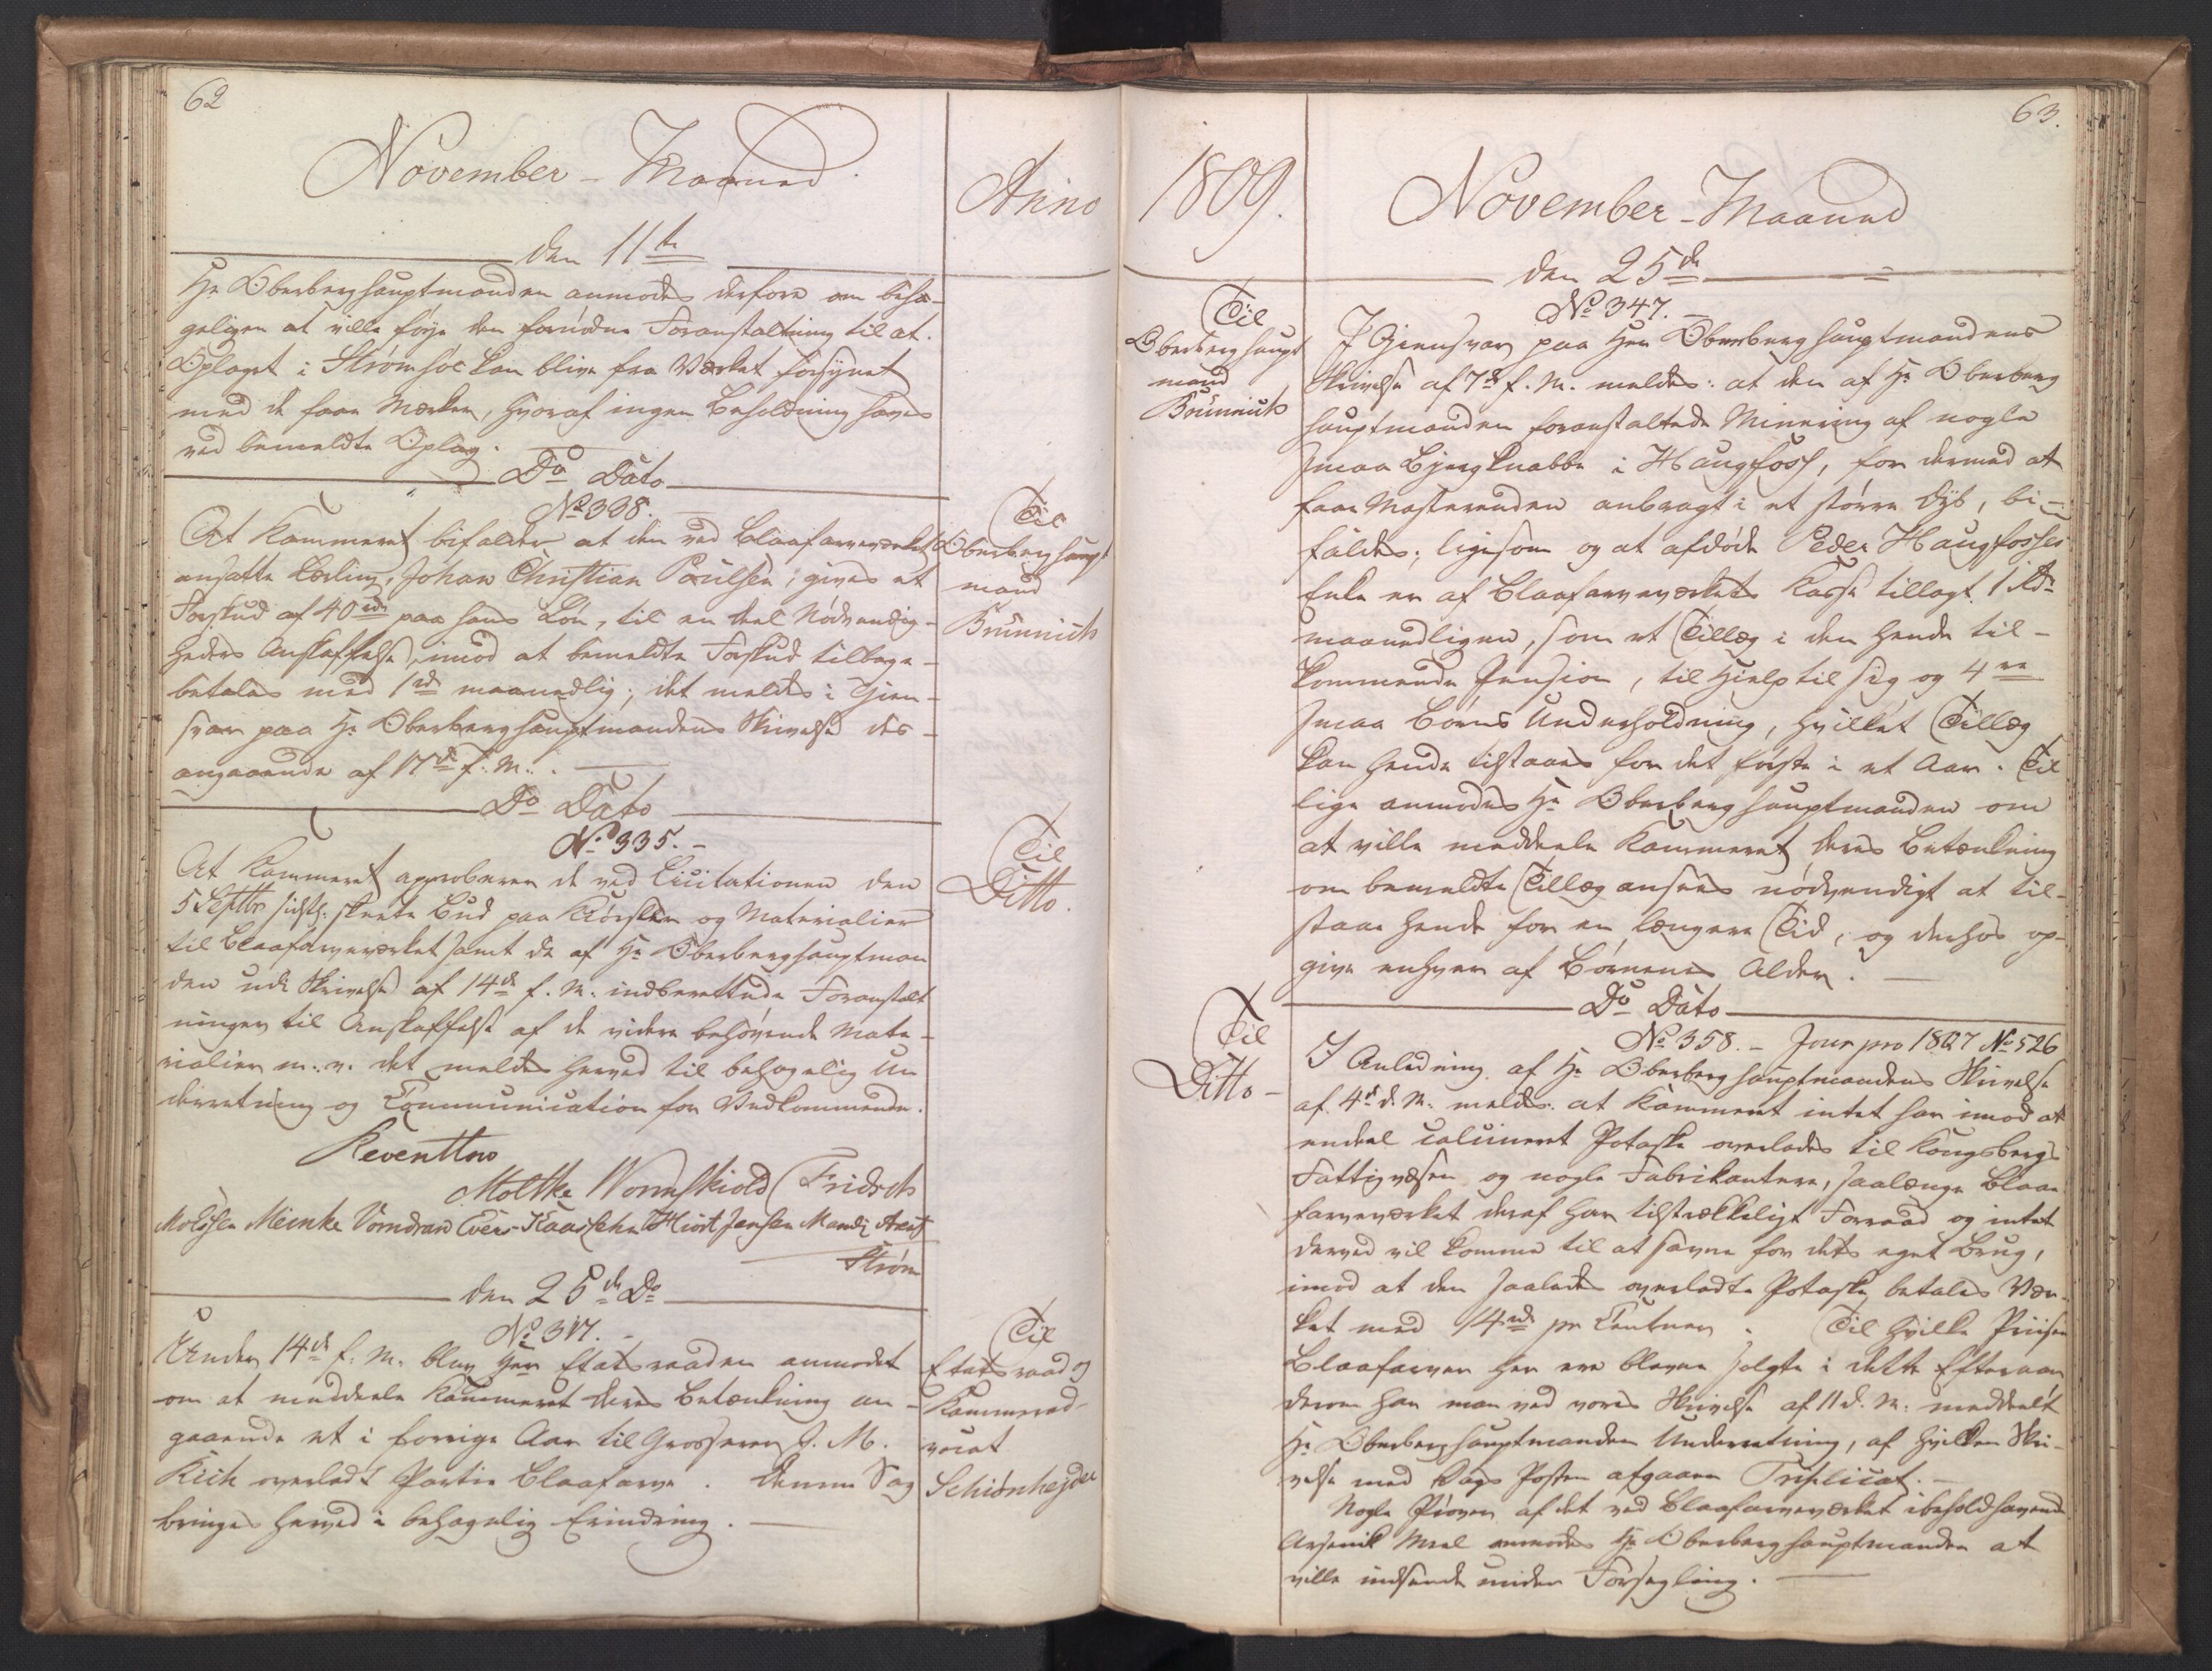 62
November - Maaned
Anno
den 11te
Hr Oberberghauptmanden anmodes derfore om beha-
geligen at ville føye den fornødne Foranstaltning til at
Oplaget i Strømsøe kan blive fra Værket forsynet
med de faae Mærker, hvoraf ingen Beholdning haves
ved bemeldte Oplag.
Do Dato
No 338.
Til
Oberberghaupt
mand
Brünnich
At Kammeret bifalder at den ved Blaafarveværket
ansatte Lærling, Johan Christian Poulsen, gives et
Forskud af 40 rdr paa hans Løn, til en deel Nødvendig-
heders Anskaffelse, imod at bemeldte Forskud tilbage-
betales med 1 rd maanedlig; det meldes i Gien-
svar paa Hr Oberberghauptmandens Skrivelse des-
angaaende af 17de f. M.
Do Dato
No 335.
Til
Ditto.
At Kammeret approberer de ved Licitationen den
5 Septbr sidstl. skeete Bud paa Kiørsler og Materialier
til Blaafarveværket samt de af Hr Oberberghauptman
den udi Skrivelse af 14de f. M. indberettede Foranstalt
ninger til Anskaffelse af de videre behøvende Mate-
rialier m. v. det meldes herved til behagelig Un
derretning og Communication for Vedkommende.
Reventlow
Moltke Wormskiold Fridsch
Meinke Vorndran Evers Hiort Jensen
Strøm
den 25de Do
No 317.
Til
Etatsraad og
Kammerad-
vocat
Schiønheyder
Under 14de f. M. blev Herr Etatsraaden anmodet
om at meddeele Kammeret Deres Betænkning an-
gaaende et i forrige Aar til Grosserer J. M.
Kick overladt Partie Blaafarve. Denne Sag
bringes herved i behagelig Erindring.
63.
1809.
November - Maaned
den 25de
No 347.
Til
Oberberghaupt
mand
Brünnich
I Giensvar paa Herr Oberberghauptmandens
Skrivelse af 7de f. M. meldes: at den af Hr Oberberg
hauptmanden foranstaltede Minering af nogle
smaa Bjergknabbe i Haugfoss, for dermed at
faae Masterenden anbragt i et større Dyb, bi-
faldes; ligesom og at afdøde Peder Haugfosses
Enke er af Blaafarveværkets Kasse tillagt 1 Rdr
maanedligen, som et Tillæg i den hende til-
kommende Pension, til Hjelp til sig og 4re
smaa Børns Underholdning, hvilket Tillæg
kan hende tilstaaes for det første i et Aar. Til
lige anmodes Hr Oberberghauptmanden om
at ville meddeele Kammeret Deres Betænkning
om bemeldte Tillæg ansees nødvendigt at til-
staae hende for en længere Tid, og derhos op-
give enhver af Børnenes Alder.
Do Dato
No 358. - Jour pro 1807 No 526
Til
Ditto -
I Anledning af Hr Oberberghauptmandens Skrivelse
af 4de d. M. meldes: at Kammeret intet har imod at
endeel calcineret Potaske overlades til Kongsbergs
Fattigvæsen og nogle Fabrikantere, saalænge Blaa
farveværket deraf har tilstrækkeligt Forraad og intet
derved vil komme til at savne for dets eget Brug,
imod at den saaledes overladte Potaske betales Vær-
ket med 14 rdr pr Centner. Til hvilke Priiser
Blaafarver her ere blevne solgte i dette Efteraar
derom har man ved vores Skrivelse af 11 d. M. meddeelt
Hr Oberberghauptmanden Underretning, af hvilken Skri-
velse med Dags Posten afgaaer Triplicat.
Nogle Prøver af det ved Blaafarveværket ibeholdhavende
Arsenik Meel anmodes Hr Oberberghauptmanden at
ville indsende under Forsegling.